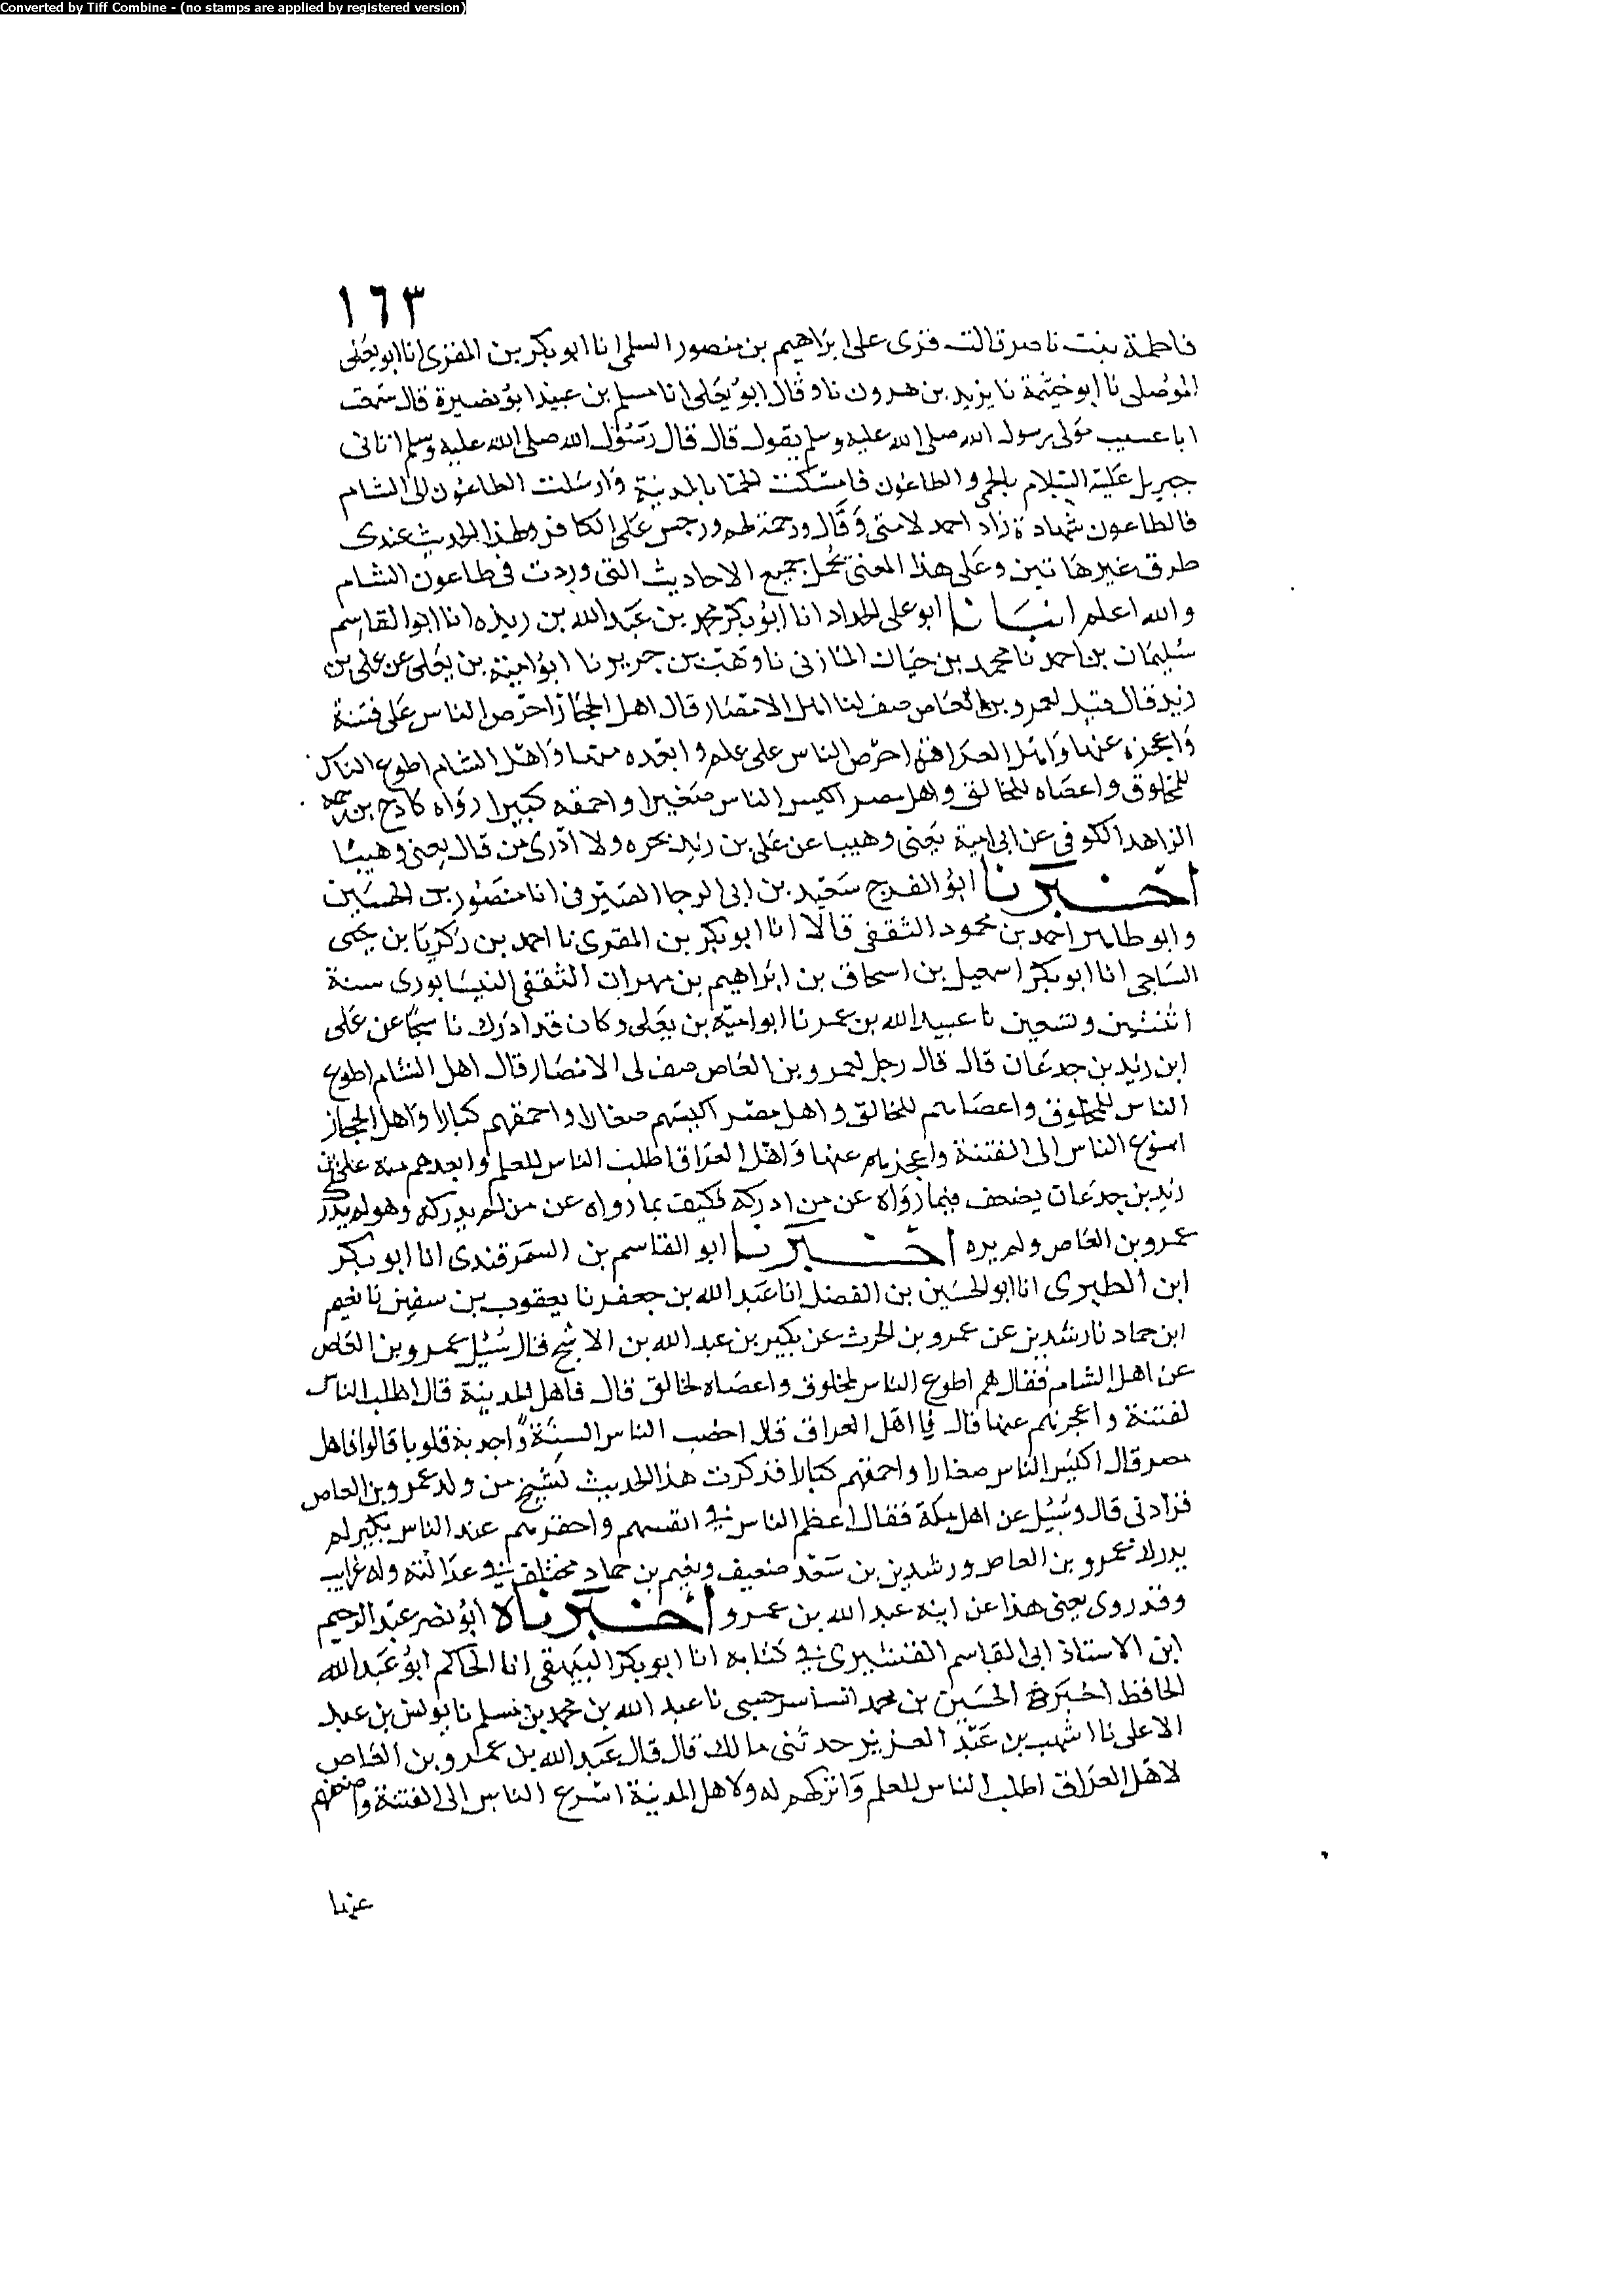 Converted by Tiff Combine - (no stamps are applied by registered version)
١٦٣
فاطمة بنت ناصر قالت قرى على ابراهيم بن منصور السلمى انا ابو بكر بن المقرى انا ابو يعلى
الموصلى نا ابو خيثمة نا يزيد بن هرون نا وقال ابو يعلى انا مسلم بن عبيد ابو نصيرة قال سمعت
ابا عسيب مولى رسول الله صلى الله عليه وسلم يقول قال قال رسول الله صلى الله عليه وسلم اتانى
جبريل عليه السلام بالحمى والطاعون فامسكت الحمى بالمدينة وارسلت الطاعون الى الشام
فالطاعون شهادة زاد احمد لامتى وقال ورحمة لهم ورجس على الكافر ولهذا الحديث عندى
طرق غير هاتين وعلى هذا المعنى يحمل جميع الاحاديث التى وردت فى طاعون الشام
والله اعلم انبانا ابو على الحداد انا ابو بكر محمد بن عبد الله بن ريذه انا ابو القاسم
سليمان بن احمد نا محمد بن حيان المازنى نا وهب بن جرير نا ابو امية بن يعلى عن على بن
زيد قال قيل لعمرو بن العاص صف لنا اهل الامصار قال اهل الحجاز احرص الناس على فتنة
واعجزه عنها واهل العراق احرص الناس على علم وابعده منها واهل الشام اطوع الناس
للمخلوق واعصاه للخالق واهل مصر اكيس الناس صغيرا واحمقه كبيرا رواه كادح بن رحمه
الزاهد الكوفى عن ابى امية يعنى وهيبا عن على بن زيد نحوه ولا ادرى من قال يعنى وهيبا
اخبرنا ابو الفرج سعيد بن ابى الرجا الصيرفى انا منصور بن الحسين
وابو طاهر احمد بن محمود الثقفى قالا انا ابو بكر بن المقرى نا احمد بن زكريا بن يحيى
الساجى انا ابو بكر اسمعيل بن اسحاق بن ابراهيم بن مهران الثقفى النيسابورى سنة
اثنتين وتسعين نا عبيد الله بن عمر نا ابو امية بن يعلى وكان قد ادرك نا عن على
ابن زيد بن جدعان قال قال رجل لعمرو بن العاص صف لى الامصار قال اهل الشام اطوع
الناس للمخلوق واعصاهم للخالق واهل مصر اكيسهم صغارا واحمقهم كبارا واهل الحجاز
اسرع الناس الى الفتنة واعجزهم عنها واهل العراق اطلب الناس للعلم وابعدهم منه على بن
زيد بن جدعان يضعف فيما رواه عن من ادركه فكيف بما رواه عن من لم يدركه وهو لم يدرك
عمرو بن العاص ولم يره اخبرنا ابو القاسم بن السمرقندى انا ابو بكر
ابن الطبرى انا ابو الحسين بن الفضل انا عبد الله بن جعفر نا يعقوب بن سفين نا نعيم
ابن حماد نا رشدين عن عمرو بن الحرث عن بكير بن عبد الله بن الاشج قال سئل عمرو بن العاص
عن اهل الشام فقال هم اطوع الناس لمخلوق واعصاه لخالق قال فاهل المدينة قال اطلب الناس
لفتنة واعجزهم عنها قال فاهل العراق قال اخصب الناس السنة واجدبه قلوبا قالوا فاهل
مصر قال اكيس الناس صغارا واحمقهم كبارا فذكرت هذا الحديث لشيخ من ولد عمرو بن العاص
فزادنى قال وسئل عن اهل مكة فقال اعظم الناس فى انفسهم واحقرهم عند الناس بكير لم
يدرك عمرو بن العاص ورشدين بن سعد ضعيف ونعيم بن حماد مختلف فى عدالته وله غرايب
وقد روى يعنى هذا عن ابنه عبد الله بن عمرو اخبرناه ابو نصر عبد الرحيم
ابن الاستاذ ابى القاسم القشيرى فى كتابه انا ابو بكر البيهقى انا الحاكم ابو عبد الله
الحافظ اخبرنى الحسين بن محمد الماسرجسى نا عبد الله بن محمد بن مسلم نا يونس بن عبد
الاعلى نا اشهب بن عبد العزيز حدثنى مالك قال قال عبد الله بن عمرو بن العاص
لاهل العراق اطلب الناس للعلم واتركهم له ولاهل المدينة اسرع الناس الى الفتنة واضعفهم
عنها